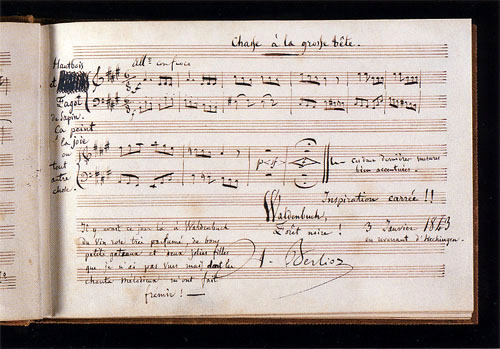 Chasse à la grosse bête.
Hautbois
et
Fagot
de Sapin.
Ça peint
la joie
ou
tout
autre
chose.
All° con fuoco
ff
p < ff >
Les deux dernières mesures
bien accentuées.
Inspiration carrée !!
Waldenbuch,
Forêt noire ! 3 Janvier 1843
en revenant d'Hechingen.
Il y avait ce jour là à Waldenbuch
du vin rose très parfumé de bons
petits gâteaux et deux jolies filles
que je n'ai pas vues mais dont les
chants mélodieux m'ont fait
frémir ! —
H. Berlioz